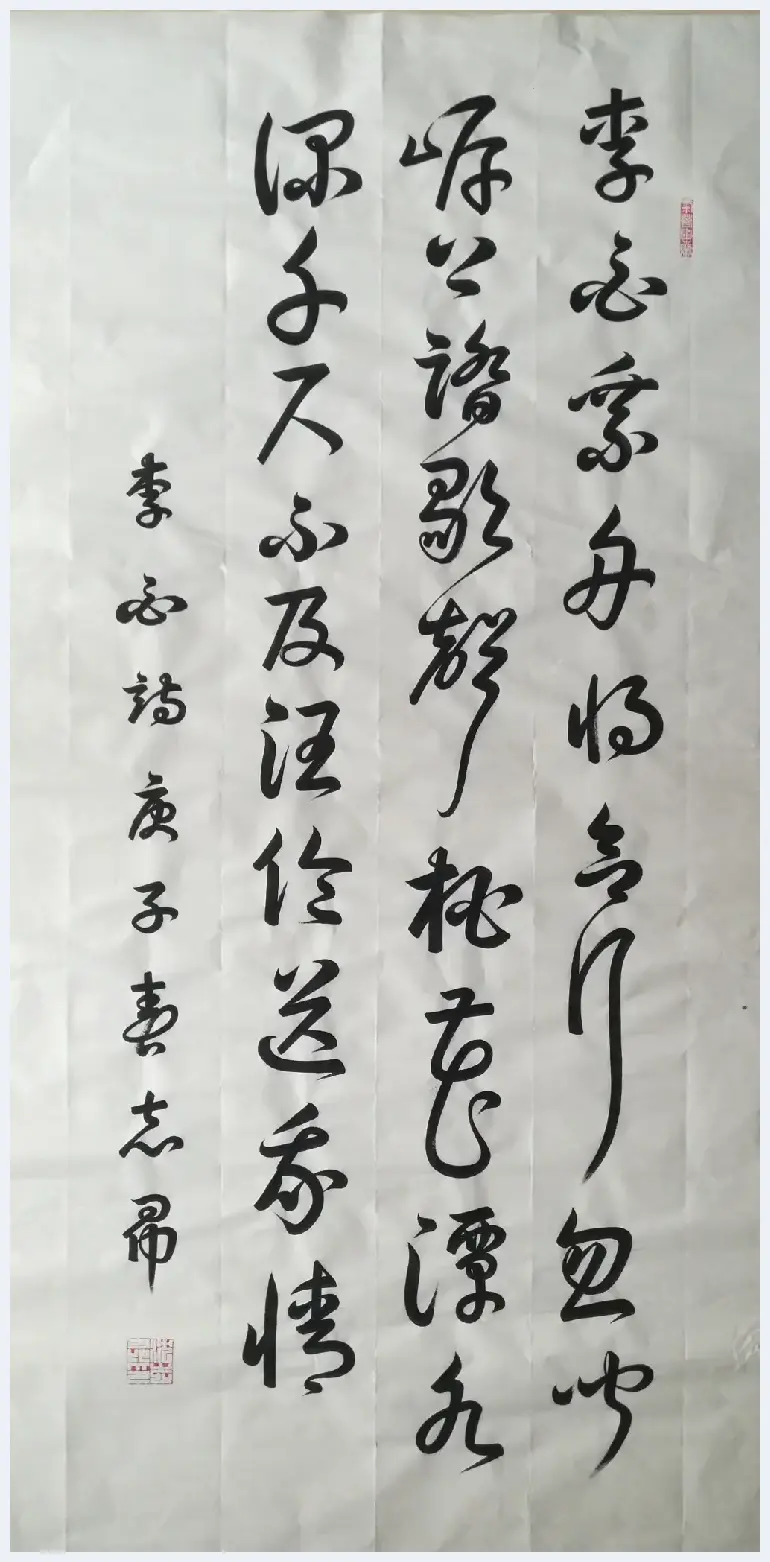 李白乘舟将欲行忽闻
岸上踏歌声桃花潭水
深千尺不及汪伦送我情
李白诗庚子春志帚